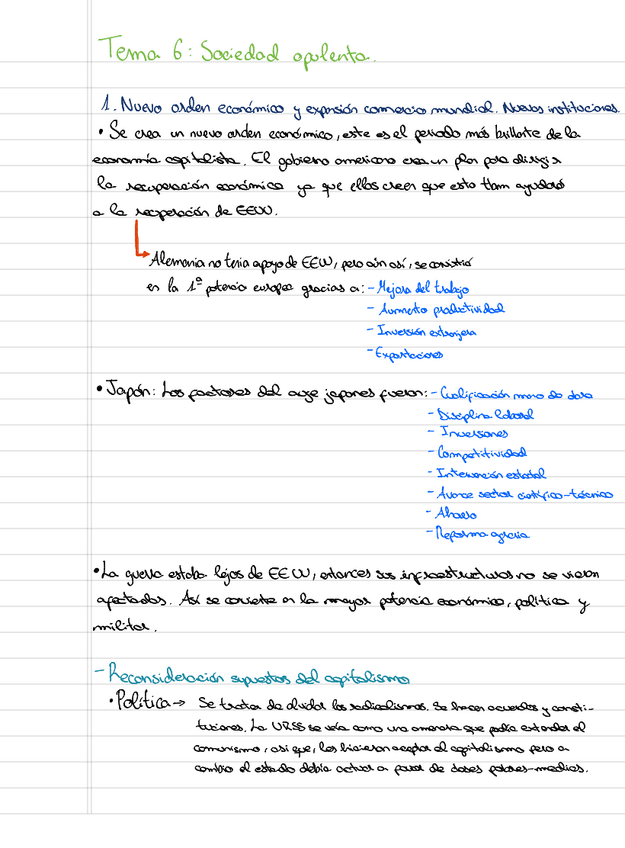 Tema 6: Sociedad opulenta.
1. Nuevo orden económico y expansión comercio mundial. Nuevas instituciones.
• Se crea un nuevo orden económico, este es el periodo más brillante de la
economía capitalista. El gobierno americano crea un plan para dirigir
la recuperación económica ya que ellos creen que esto tbm ayudará
a la recuperación de EEUU.
Alemania no tenía apoyo de EEUU, pero aún así, se convirtió
en la 1ª potencia europea gracias a: - Mejora del trabajo
- Aumento productividad
- Inversión extranjera
- Exportaciones
• Japón: Los factores del auge japones fueron: - Cualificación mano de obra
- Disciplina laboral
- Inversiones
- Competitividad
- Intervención estatal
- Avance sector científico-técnico
- Ahorro
- Reforma agraria
• La guerra estaba lejos de EEUU, entonces sus infraestructuras no se vieron
afectadas. Así se convierte en la mayor potencia económica, política y
militar.
- Reconsideración supuestos del capitalismo
• Política → Se trata de olvidar los radicalismos. Se hacen acuerdos y consti-
tuciones. La URSS se veía como una amenaza que podía extender el
comunismo, así que, les hicieron aceptar el capitalismo pero a
cambio el estado debía actuar a favor de clases pobres-medias.